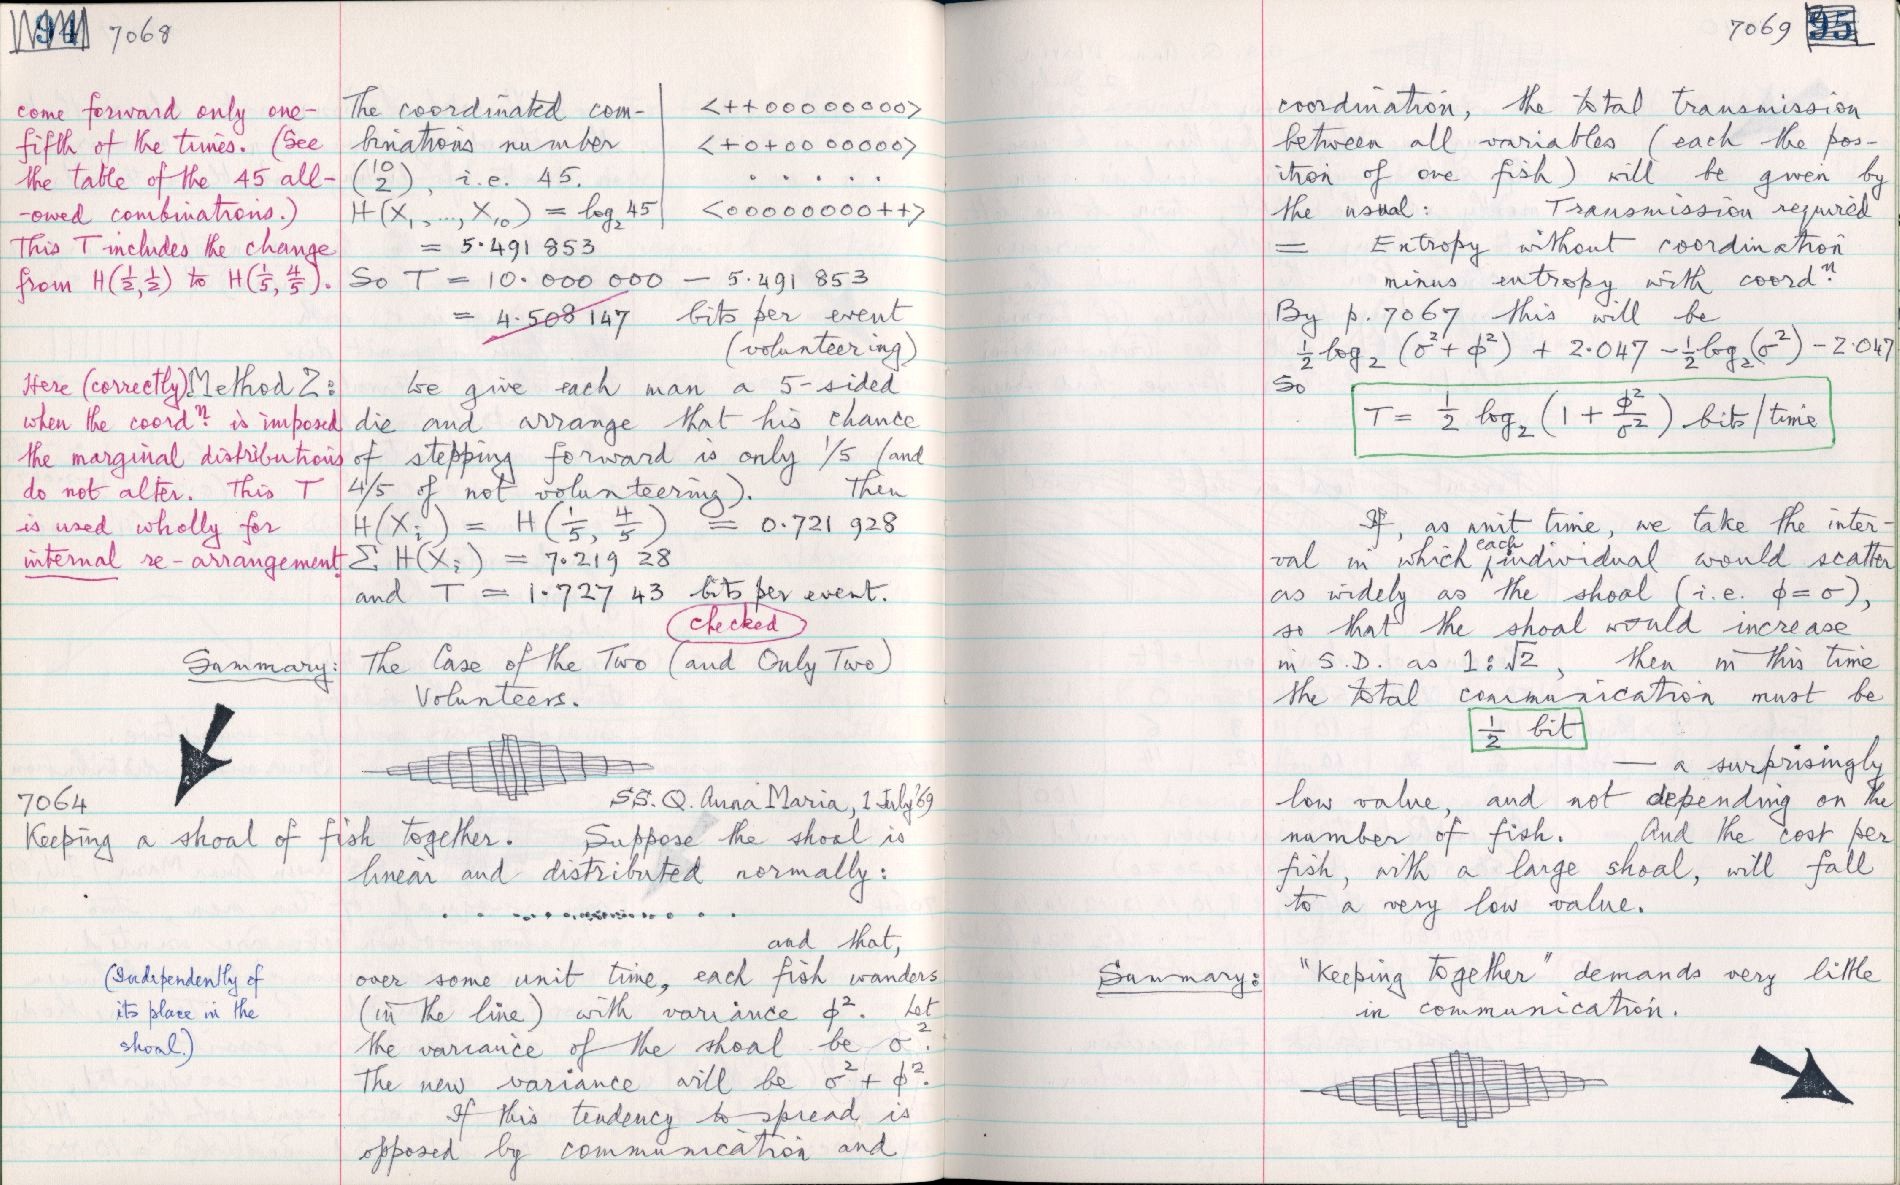 94 7068
come forward only one-
fifth of the times. (See
the table of the 45 all-
-owed combinations.)
This T includes the change
from H(½,½) to H(⅕,⅘).
The coordinated com-
binations number
(10 2), i.e. 45.
H(X₁,...,X₁₀) = log₂45
= 5·491 853
<++00000000>
<+0+0000000>
. . . . .
<00000000++>
So T = 10·000 000 − 5·491 853
= 4·508 147 bits per event
(volunteering)
Here (correctly)
when the coordⁿ is imposed
the marginal distributions
do not alter. This T
is used wholly for
internal re-arrangement.
Method 2: We give each man a 5-sided
die and arrange that his chance
of stepping forward is only 1/5 (and
4/5 of not volunteering). Then
H(Xᵢ) = H(⅕, ⅘) = 0·721 928
Σ H(Xᵢ) = 7·219 28
and T = 1·727 43 bits per event.
checked
Summary: The Case of the Two (and Only Two)
Volunteers.
S.S. Q. Anna Maria, 1 July '69
7064
Keeping a shoal of fish together. Suppose the shoal is
linear and distributed normally:
and that,
(Independently of
its place in the
shoal.)
over some unit time, each fish wanders
(in the line) with variance φ². Let
the variance of the shoal be σ².
The new variance will be σ² + φ².
If this tendency to spread is
opposed by communication and
7069 95
coordination, the total transmission
between all variables (each the pos-
ition of one fish) will be given by
the usual: Transmission required
= Entropy without coordination
minus entropy with coordⁿ
By p. 7067 this will be
½ log₂ (σ² + φ²) + 2·047 − ½ log₂(σ²) − 2·047
So
T = ½ log₂ (1 + φ²/σ²) bits/time
If, as unit time, we take the inter-
val in which each individual would scatter
as widely as the shoal (i.e. φ = σ),
so that the shoal would increase
in S.D. as 1:√2, then in this time
the total communication must be
½ bit
— a surprisingly
low value, and not depending on the
number of fish. And the cost per
fish, with a large shoal, will fall
to a very low value.
Summary: "Keeping together" demands very little
in communication.